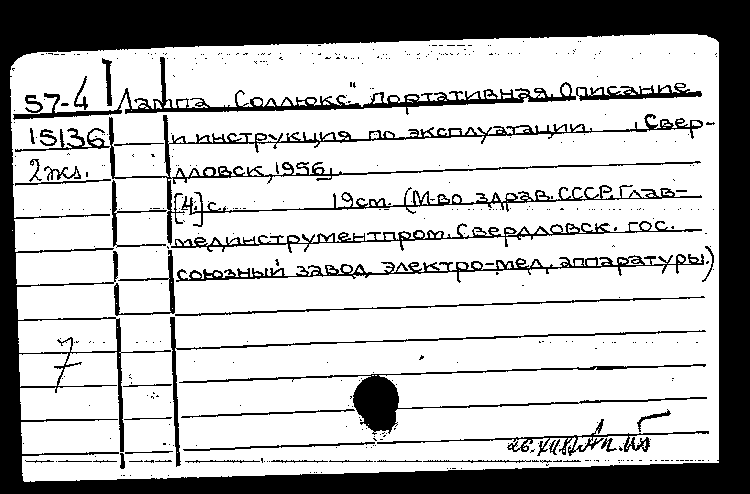 57-4 Лампа „Соллюкс" портативная. Описание
15136 и инструкция по эксплуатации. [Свер-
2 экз. дловск, 1956].
[4] с. 19см. (М-во здрав. СССР. Глав-
мединструментпром. Свердловск. гос.
союзный завод электро-мед. аппаратуры.)
7